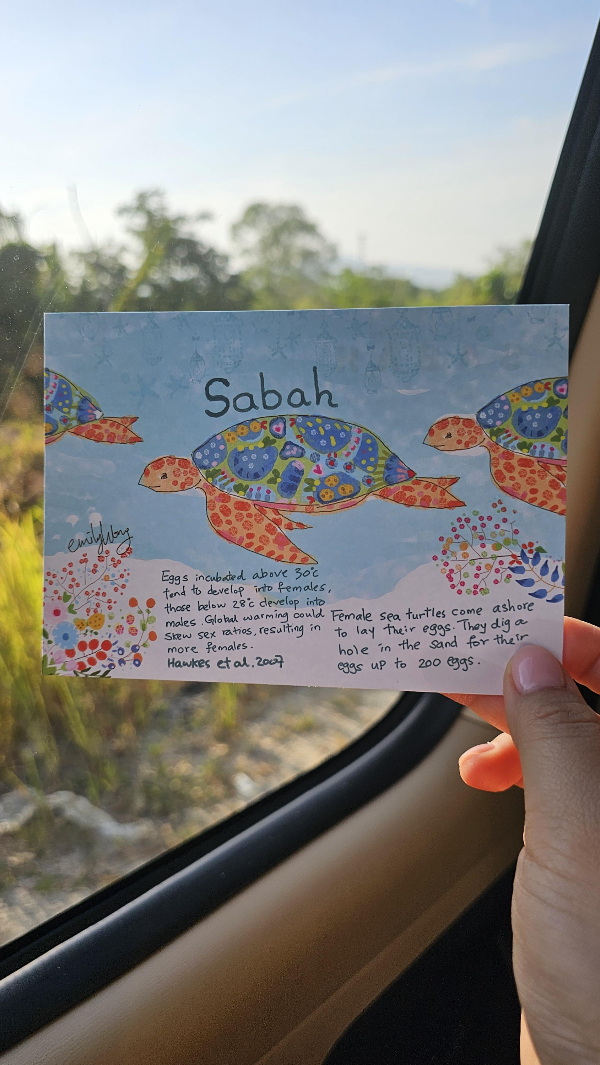 Sabah
Eggs incubated above 30°c
tend to develop into females,
those below 28°c develop into
males. Global warming could
skew sex ratios, resulting in
more females.
Hawkes et al, 2007
Female sea turtles come ashore
to lay their eggs. They dig a
hole in the sand for their
eggs up to 200 eggs.